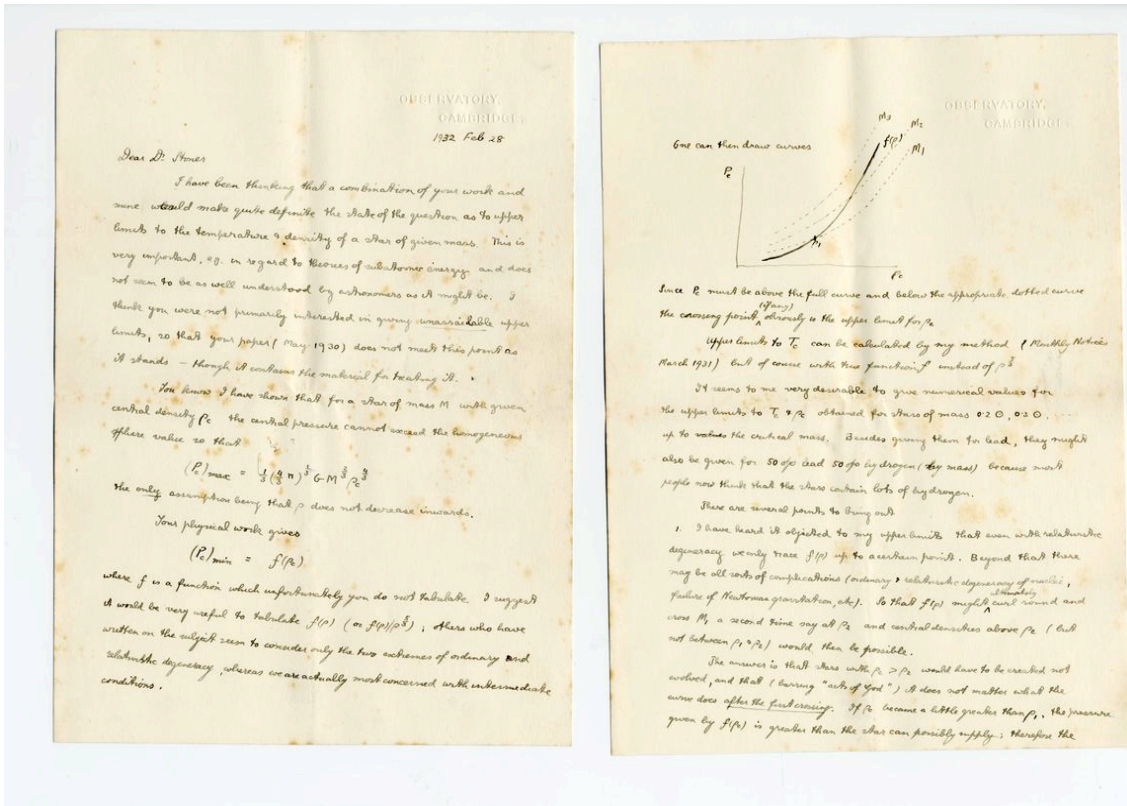 OBSERVATORY,
CAMBRIDGE.
1932 Feb 28
Dear Dr Stoner
I have been thinking that a combination of your work and
mine would make quite definite the state of the question as to upper
limits to the temperature & density of a star of given mass. This is
very important, e.g. in regard to theories of subatomic energy and does
not seem to be as well understood by astronomers as it might be. I
think you were not primarily interested in giving unassailable upper
limits, so that your paper (May 1930) does not meet this point as
it stands – though it contains the material for treating it.
You know I have shown that for a star of mass M with given
central density ρc the central pressure cannot exceed the homogeneous
sphere value so that
(Pc)max = ½(4/3 π)^⅓ G M^⅔ ρc^4/3
the only assumption being that ρ does not decrease inwards.
Your physical work gives
(Pc)min = f(ρc)
where f is a function which unfortunately you do not tabulate. I suggest
it would be very useful to tabulate f(ρ) (or f(ρ)/ρ^5/3); others who have
written on the subject seem to consider only the two extremes of ordinary and
relativistic degeneracy, whereas we are actually most concerned with intermediate
conditions.
OBSERVATORY,
CAMBRIDGE.
One can then draw curves
M3
M2
f(ρ)
M1
Pc
ρ1
ρc
Since Pc must be above the full curve and below the appropriate dotted curve
the crossing point (if any) obviously is the upper limit for ρc
Upper limits to Tc can be calculated by my method (Monthly Notices
March 1931) but of course with true function f instead of ρ^5/3
It seems to me very desirable to give numerical values for
the upper limits to Tc & ρc obtained for stars of mass 0.2 ⊙, 0.3 ⊙, ....
up to values the critical mass. Besides giving them for lead, they might
also be given for 50 o/o lead 50 o/o hydrogen (by mass) because most
people now think that the stars contain lots of hydrogen.
There are several points to bring out
1. I have heard it objected to my upper limits that even with relativistic
degeneracy we only trace f(ρ) up to a certain point. Beyond that there
may be all sorts of complications (ordinary & relativistic degeneracy of nuclei,
failure of Newtonian gravitation, etc). So that f(ρ) might ultimately curl round and
cross M1 a second time say at ρ2 and central densities above ρ2 (but
not between ρ1 & ρ2) would then be possible.
The answer is that stars with ρc > ρ2 would have to be created not
evolved, and that (barring "acts of God") it does not matter what the
curve does after the first crossing. If ρc became a little greater than ρ1, the pressure
given by f(ρc) is greater than the star can possibly supply; therefore the